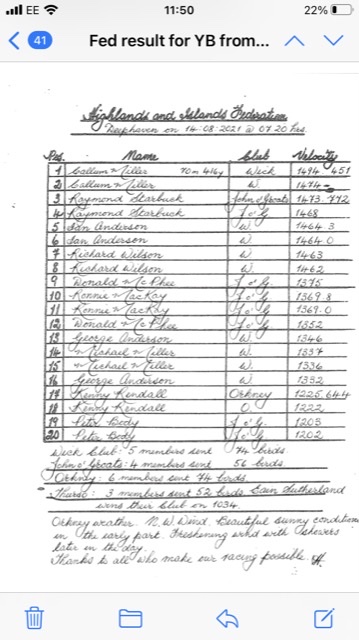 EE 11:50 22%
41 Fed result for YB from...
Highlands and Islands Federation
Deephaven on 14.08.2021 @ 07.20 hrs.
Pos. Name Club Velocity
1 Callum Miller 70m 416y Wick 1494.451
2 Callum Miller W. 1474
3 Raymond Starbuck John o'Groats 1473.772
4 Raymond Starbuck J o' G. 1468
5 Ian Anderson W. 1464.3
6 Ian Anderson W. 1464.0
7 Richard Wilson W. 1463
8 Richard Wilson W. 1462
9 Donald Mc Phee J o' G. 1375
10 Ronnie MacKay J o' G. 1369.8
11 Ronnie MacKay J o' G. 1369.0
12 Donald Mc Phee J o' G. 1352
13 George Anderson W. 1346
14 Michael Miller W. 1337
15 Michael Miller W. 1336
16 George Anderson W. 1332
17 Kenny Kendall Orkney 1225.644
18 Kenny Kendall O. 1222
19 Peter Body J o' G. 1203
20 Peter Body J o' G. 1202
Wick Club: 5 members sent 74 birds
John o'Groats: 4 members sent 56 birds.
Orkney: 6 members sent 74 birds.
Thurso: 3 members sent 52 birds. Eoin Sutherland
wins their Club on 1034.
Orkney weather. N.W Wind. Beautiful sunny conditions
in the early part. Freshening wind with showers
later in the day.
Thanks to all who make our racing possible.